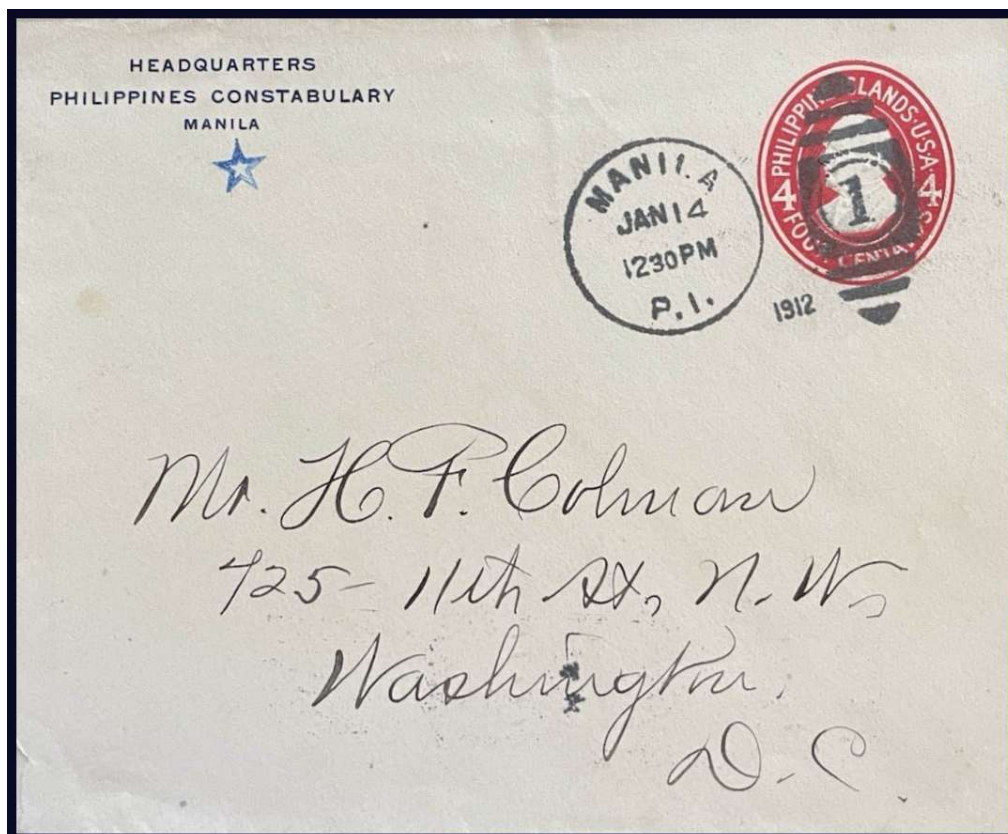 HEADQUARTERS
PHILIPPINES CONSTABULARY
MANILA
MANILA
JAN 14
1230 PM
P.I.
1912
1
PHILIPPINE ISLANDS·U·S·A·
4 4
FOUR CENTAVOS
Mr. H. F. Colman
425- 11th St, N. W,
Washington,
D.C.